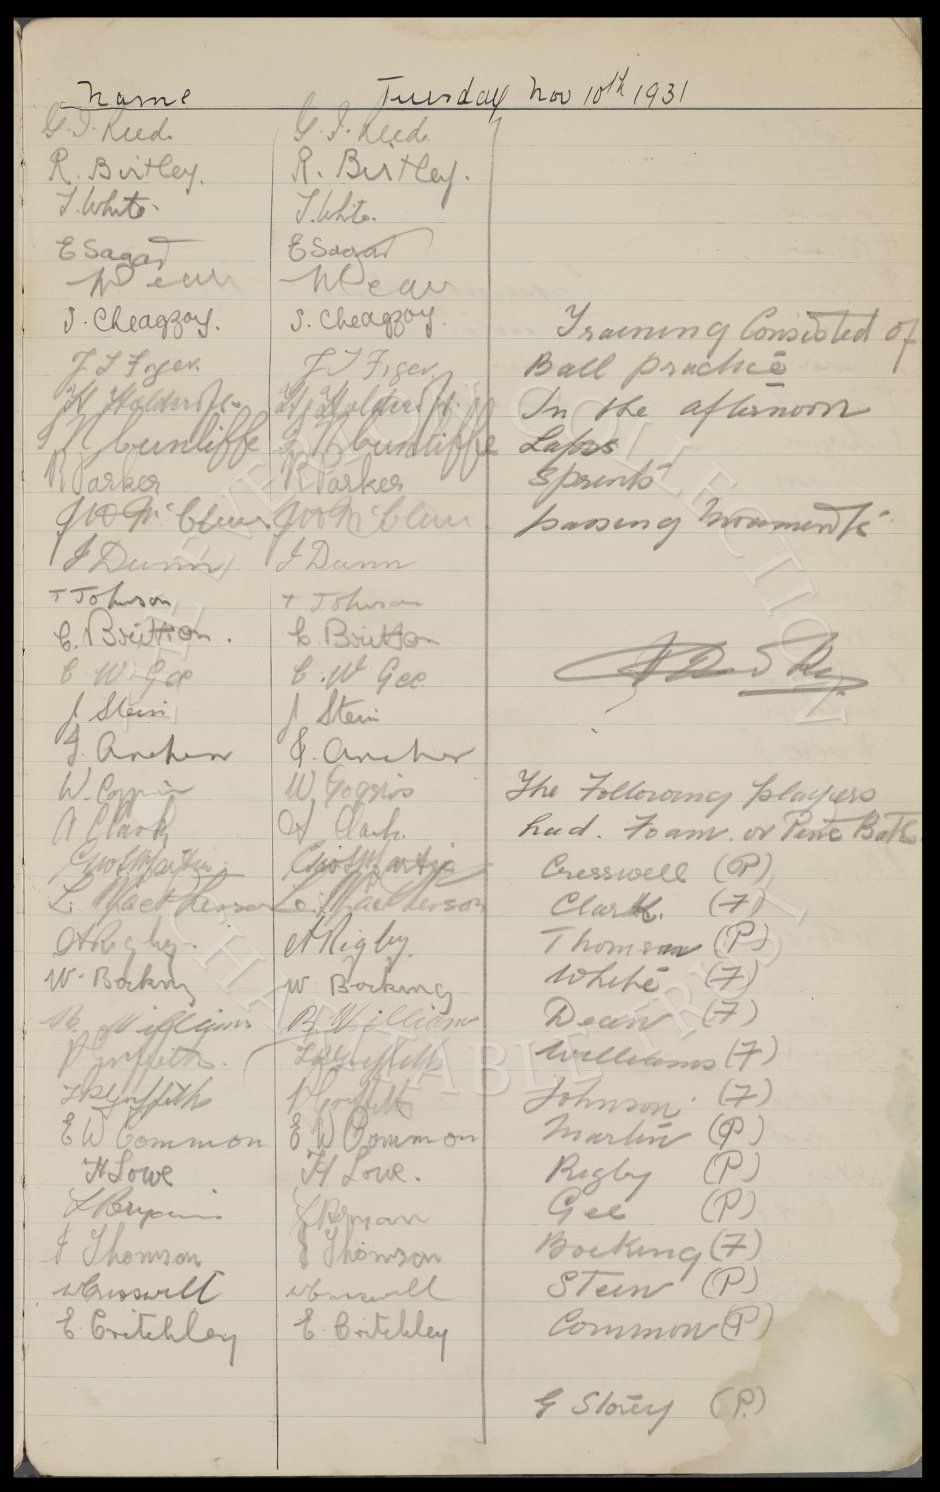 Name Tuesday Nov 10th 1931
G. I. Reed. G. I. Reed.
R. Birtley. R. Birtley.
T. White. T. White.
E Sagar E Sagar
W Dean W Dean
S. Cheagzoy. S. Cheagzoy.
Training Consisted of
Ball practice
In the afternoon
Laps
Sprints
passing movements
H Holdcroft H. Holdcroft.
J N Cunliffe J N Cunliffe
R Parker R Parker
J McClure J McClure
J Dunn J Dunn
T Johnson T Johnson
C. Britton. C. Britton
C W Gee C. W Gee
J Stein J Stein
F. Archer F. Archer
W. Coggins W Goggins
A Clark A Clark.
Chas W Martin Chas W Martin
L. MacPherson L. MacPherson
A Rigby. A Rigby.
W. Bocking W Bocking
B. Williams B Williams
P Griffiths. T P Griffiths
T P Griffiths P Griffiths
E W Common E W Common
H Lowe H Lowe.
J Thomson J Thomson
W Cresswell W Cresswell
E. Critchley E. Critchley
The Following players
had. Foam. or Pine Baths
Cresswell (P)
Clark. (F)
Thomson (P)
White (F)
Dean (F)
Williams (F)
Johnson (F)
Martin (P)
Rigby (P)
Gee (P)
Bocking (F)
Stein (P)
Common (P)
G Storey (P.)
THE EVERTON COLLECTION
CHARITABLE TRUST